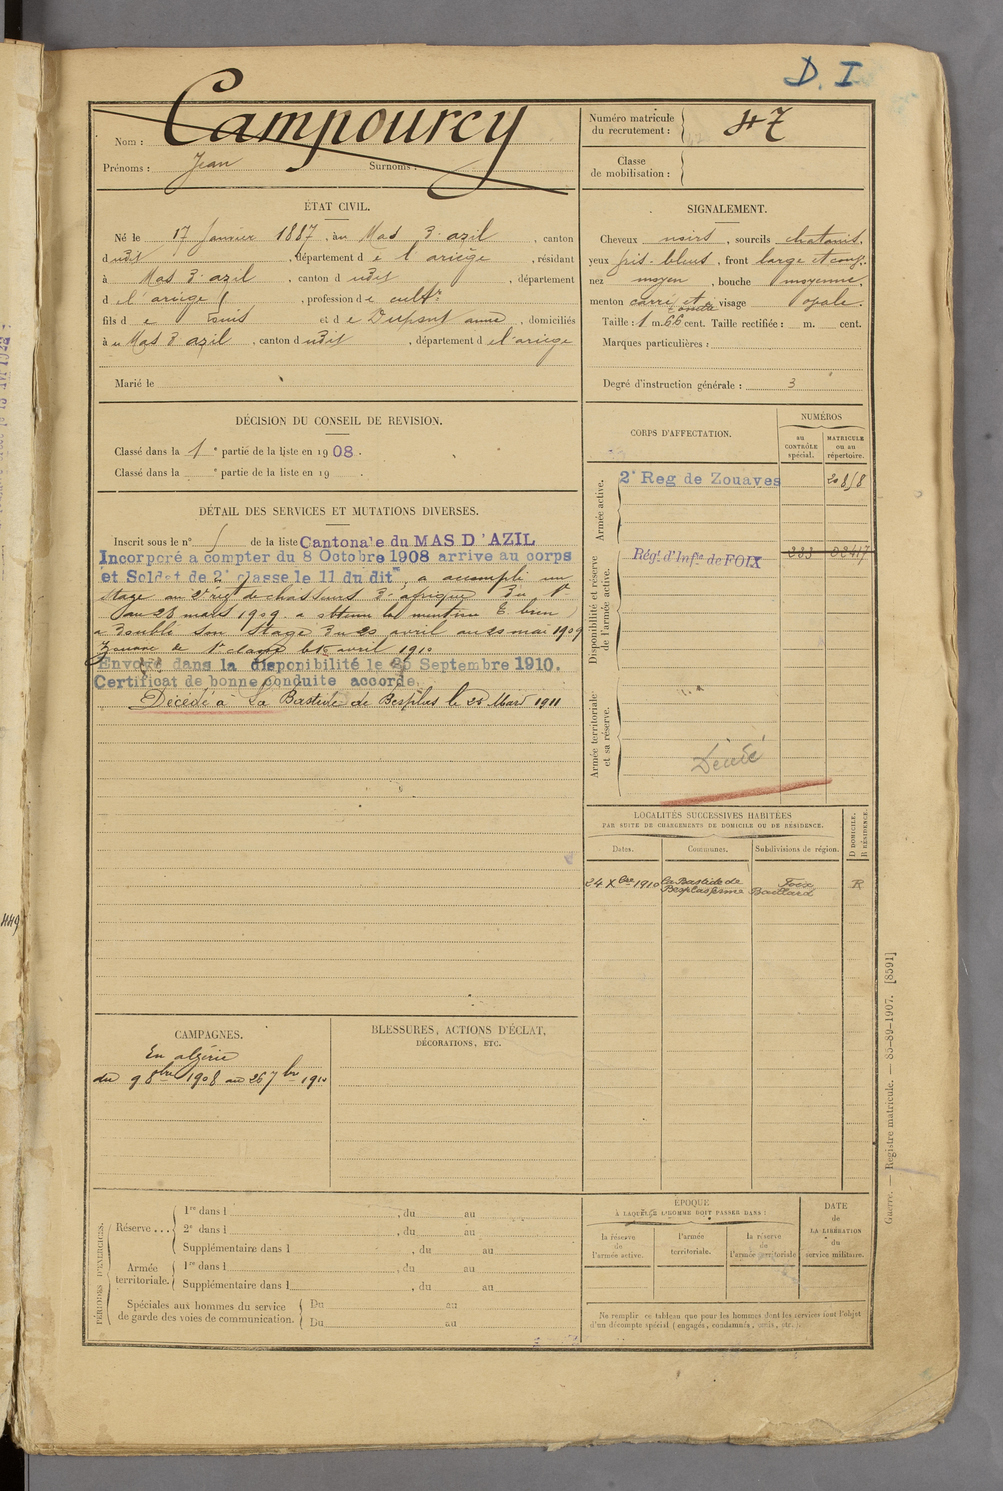 D. I
Nom : Campourcy
Prénoms : Jean Surnoms :
Numéro matricule
du recrutement : 47
Classe
de mobilisation :
ÉTAT CIVIL.
Né le 17 Janvier 1887, au Mas d'azil, canton
dudit, département de l'ariège, résidant
à Mas d'azil, canton dudit, département
de l'ariège, profession de cultr
fils de Louis et de Dupont anna, domiciliés
à u Mas d azil, canton dudit, département de l'ariège
Marié le
SIGNALEMENT.
Cheveux noirs, sourcils chatains.
yeux gris-bleus, front large et
nez moyen, bouche moyenne.
menton carré et visage ovale.
Taille : 1 m. 66 cent. Taille rectifiée : m. cent.
Marques particulières :
Degré d'instruction générale : 3
DÉCISION DU CONSEIL DE REVISION.
Classé dans la 1e partie de la liste en 1908.
Classé dans la e partie de la liste en 19
DÉTAIL DES SERVICES ET MUTATIONS DIVERSES.
Inscrit sous le n° de la liste Cantonale du MAS D'AZIL
Incorporé a compter du 8 Octobre 1908 arrive au corps
et Soldat de 2e classe le 11 du dit, a accompli un
stage au régt de chasseurs d'afrique du 1er
au 28 mars 1909. a obtenu la mention T. bien
a doublé son stage du 20 avril au 20 mai 1909
Zouave de 1e classe le avril 1910
Envoyé dans la disponibilité le Septembre 1910.
Certificat de bonne conduite accordé.
Décédé à La Bastide de Besplas le 25 Mars 1911
CORPS D'AFFECTATION.
NUMÉROS
au
CONTRÔLE
spécial.
MATRICULE
ou au
répertoire.
Armée active.
2e Reg de Zouaves
Disponibilité et réserve
de l'armée active.
Régt d'Infie de FOIX
Armée territoriale
et sa réserve.
Décédé
LOCALITÉS SUCCESSIVES HABITÉES
PAR SUITE DE CHANGEMENTS DE DOMICILE OU DE RÉSIDENCE.
Dates. Communes. Subdivisions de région. D DOMICILE. R RÉSIDENCE.
24 Xbre 1910 La Bastide de Foix R
CAMPAGNES.
En algérie
du 9 8bre 1908 au 26 7bre 1910
BLESSURES, ACTIONS D'ÉCLAT,
DÉCORATIONS, ETC.
PÉRIODES D'EXERCICES.
Réserve...
1re dans l , du au
2e dans l , du au
Supplémentaire dans l , du au
Armée
territoriale.
1re dans l , du au
Supplémentaire dans l , du au
Spéciales aux hommes du service
de garde des voies de communication.
Du au
Du au
ÉPOQUE
À LAQUELLE L'HOMME DOIT PASSER DANS :
la réserve
de
l'armée active.
l'armée
territoriale.
la réserve
de
l'armée territoriale
DATE
de
LA LIBÉRATION
du
service militaire.
Ne remplir ce tableau que pour les hommes dont les services font l'objet
d'un décompte spécial (engagés, condamnés, omis, etc.
Guerre. — Registre matricule. — 85-89-1907. [8591]
449